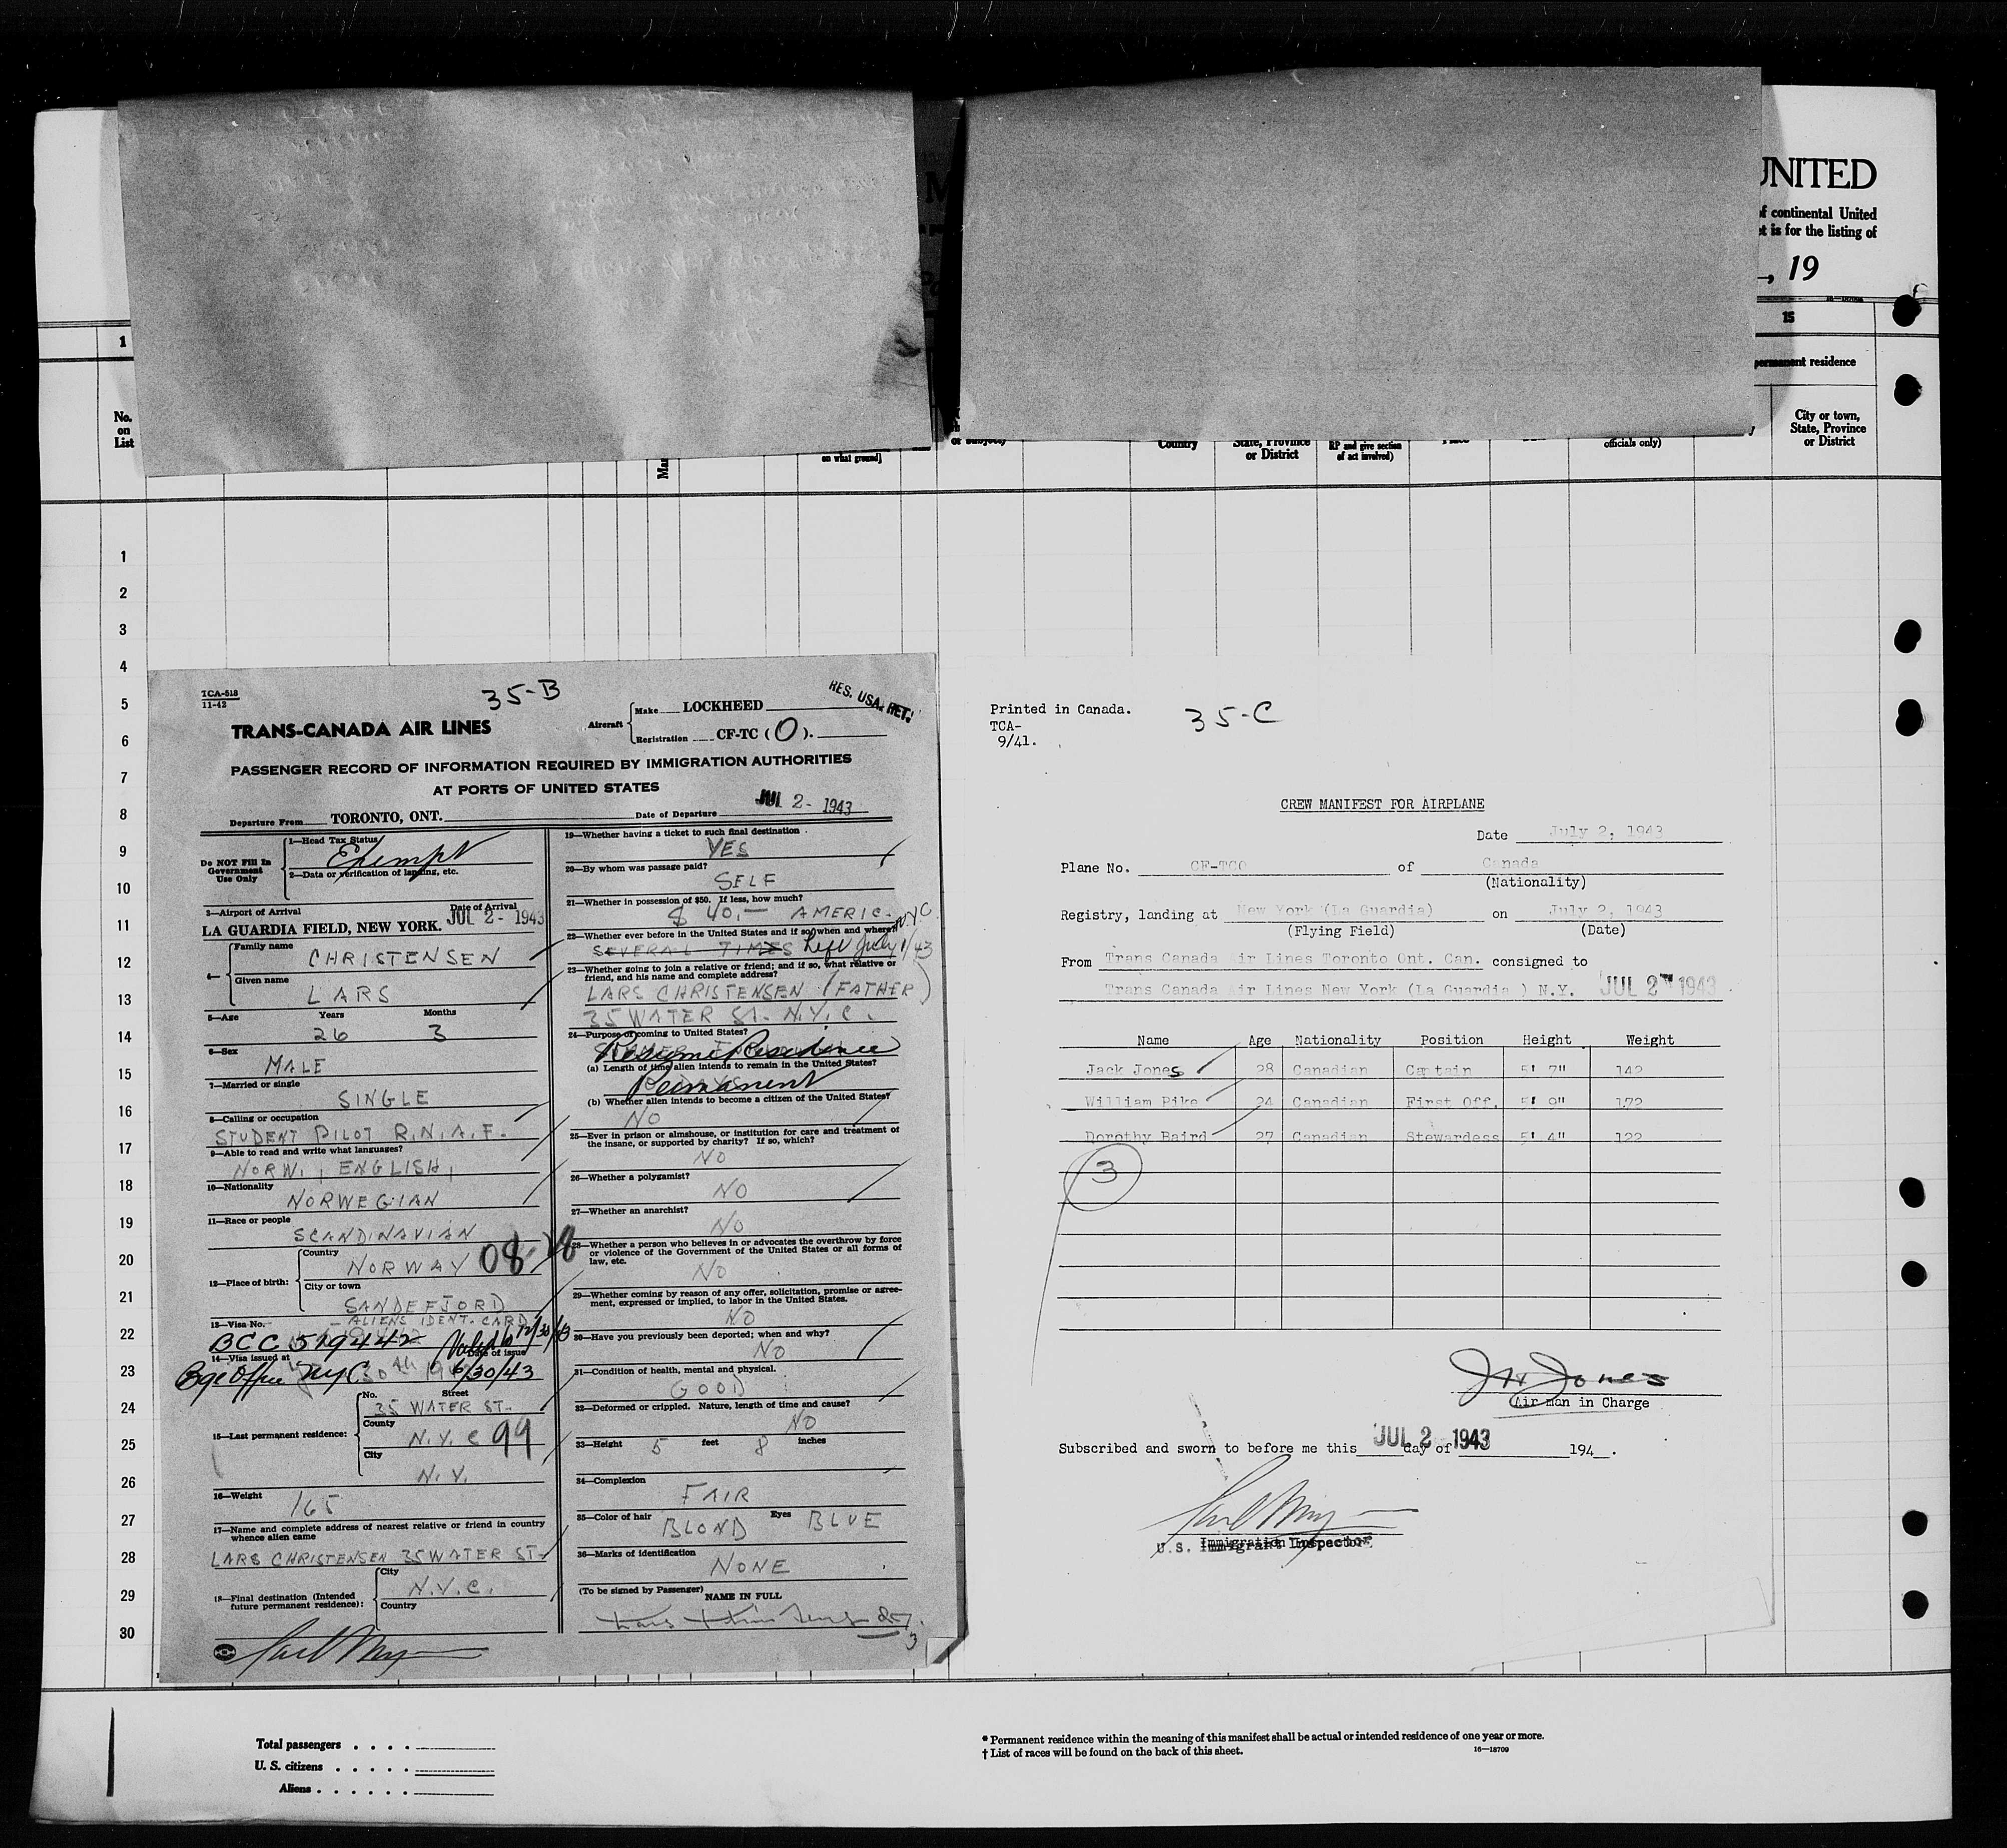 UNITED
of continental United
et is for the listing of
, 19
16-18709
1
15
permanent residence
No.
on
List
on what ground]
or subject)
Country
State, Province
or District
RP and give section
of act involved)
officials only)
City or town,
State, Province
or District
1
2
3
4
5
6
7
8
9
10
11
12
13
14
15
16
17
18
19
20
21
22
23
24
25
26
27
28
29
30
TCA-518
11-42
35-B
RES. USA. RET.
TRANS-CANADA AIR LINES
Aircraft
Make LOCKHEED
Registration CF-TC (O).
PASSENGER RECORD OF INFORMATION REQUIRED BY IMMIGRATION AUTHORITIES
AT PORTS OF UNITED STATES
Departure From TORONTO, ONT. Date of Departure JUL 2- 1943
Do NOT Fill In
Government
Use Only
1—Head Tax Status
Exempt
2—Data or verification of landing, etc.
3—Airport of Arrival Date of Arrival
LA GUARDIA FIELD, NEW YORK. JUL 2- 1943
4—
Family name
CHRISTENSEN
Given name
LARS
5—Age Years Months
26 3
6—Sex
MALE
7—Married or single
SINGLE
8—Calling or occupation
STUDENT PILOT R.N.A.F.
9—Able to read and write what languages?
NORW., ENGLISH,
10—Nationality
NORWEGIAN
11—Race or people
SCANDINAVIAN
12—Place of birth:
Country
NORWAY 08
City or town
SANDEFJORD
13—Visa No. ALIENS IDENT. CARD
BCC 519442 Valid to 12/30/43
14—Visa issued at Date of issue
Bge Office NYC 6/30/43
15—Last permanent residence:
No. Street
35 WATER ST.
County
N.Y.C 99
City
N.Y.
16—Weight
165
17—Name and complete address of nearest relative or friend in country
whence alien came
LARS CHRISTENSEN 35 WATER ST.
18—Final destination (Intended
future permanent residence):
City
N.Y.C.
Country
19—Whether having a ticket to such final destination
YES
20—By whom was passage paid?
SELF
21—Whether in possession of $50. If less, how much?
$ 40,— AMERIC.
22—Whether ever before in the United States and if so when and where?
SEVERAL TIMES Left July 1/43 NYC
23—Whether going to join a relative or friend; and if so, what relative or
friend, and his name and complete address?
LARS CHRISTENSEN (FATHER)
35 WATER ST. N.Y.C.
24—Purpose of coming to United States?
Resume Residence
(a) Length of time alien intends to remain in the United States?
Permanent
(b) Whether alien intends to become a citizen of the United States?
NO
25—Ever in prison or almshouse, or institution for care and treatment of
the insane, or supported by charity? If so, which?
NO
26—Whether a polygamist?
NO
27—Whether an anarchist?
NO
28—Whether a person who believes in or advocates the overthrow by force
or violence of the Government of the United States or all forms of
law, etc.
NO
29—Whether coming by reason of any offer, solicitation, promise or agree-
ment, expressed or implied, to labor in the United States.
NO
30—Have you previously been deported; when and why?
NO
31—Condition of health, mental and physical.
GOOD
32—Deformed or crippled. Nature, length of time and cause?
NO
33—Height 5 feet 8 inches
34—Complexion
FAIR
35—Color of hair BLOND Eyes BLUE
36—Marks of identification
NONE
(To be signed by Passenger)
NAME IN FULL
Printed in Canada.
TCA-
9/41.
35-C
CREW MANIFEST FOR AIRPLANE
Date July 2, 1943
Plane No. CF-TCO of Canada
(Nationality)
Registry, landing at New York (La Guardia) on July 2, 1943
(Flying Field) (Date)
From Trans Canada Air Lines Toronto Ont. Can. consigned to
Trans Canada Air Lines New York (La Guardia ) N.Y. JUL 2- 1943
Name Age Nationality Position Height Weight
Jack Jones 28 Canadian Captain 5' 7" 142
William Pike 24 Canadian First Off. 5' 9" 172
Dorothy Baird 27 Canadian Stewardess 5' 4" 122
3
J H Jones
Air man in Charge
Subscribed and sworn to before me this JUL 2 day of 1943 194 .
U.S. Immigration Inspector.
Total passengers . . . .
U.S. citizens . . . . .
Aliens . . . . . .
* Permanent residence within the meaning of this manifest shall be actual or intended residence of one year or more.
† List of races will be found on the back of this sheet.
16—18709